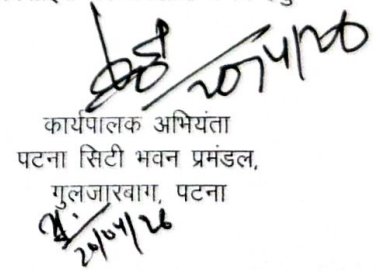 20/4/26
कार्यपालक अभियंता
पटना सिटी भवन प्रमंडल,
गुलजारबाग, पटना
20/04/26